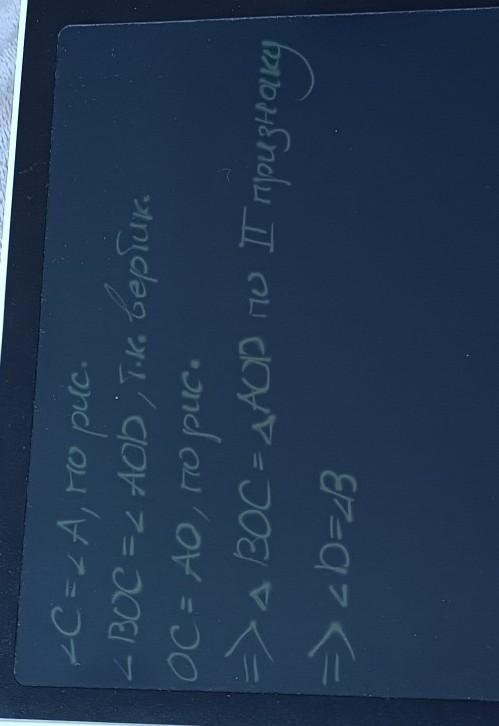 ∠C = ∠A, по рис.
∠BOC = ∠AOD, т.к. вертик.
OC = AO, по рис.
=> △BOC = △AOD по II признаку
=> ∠D = ∠B